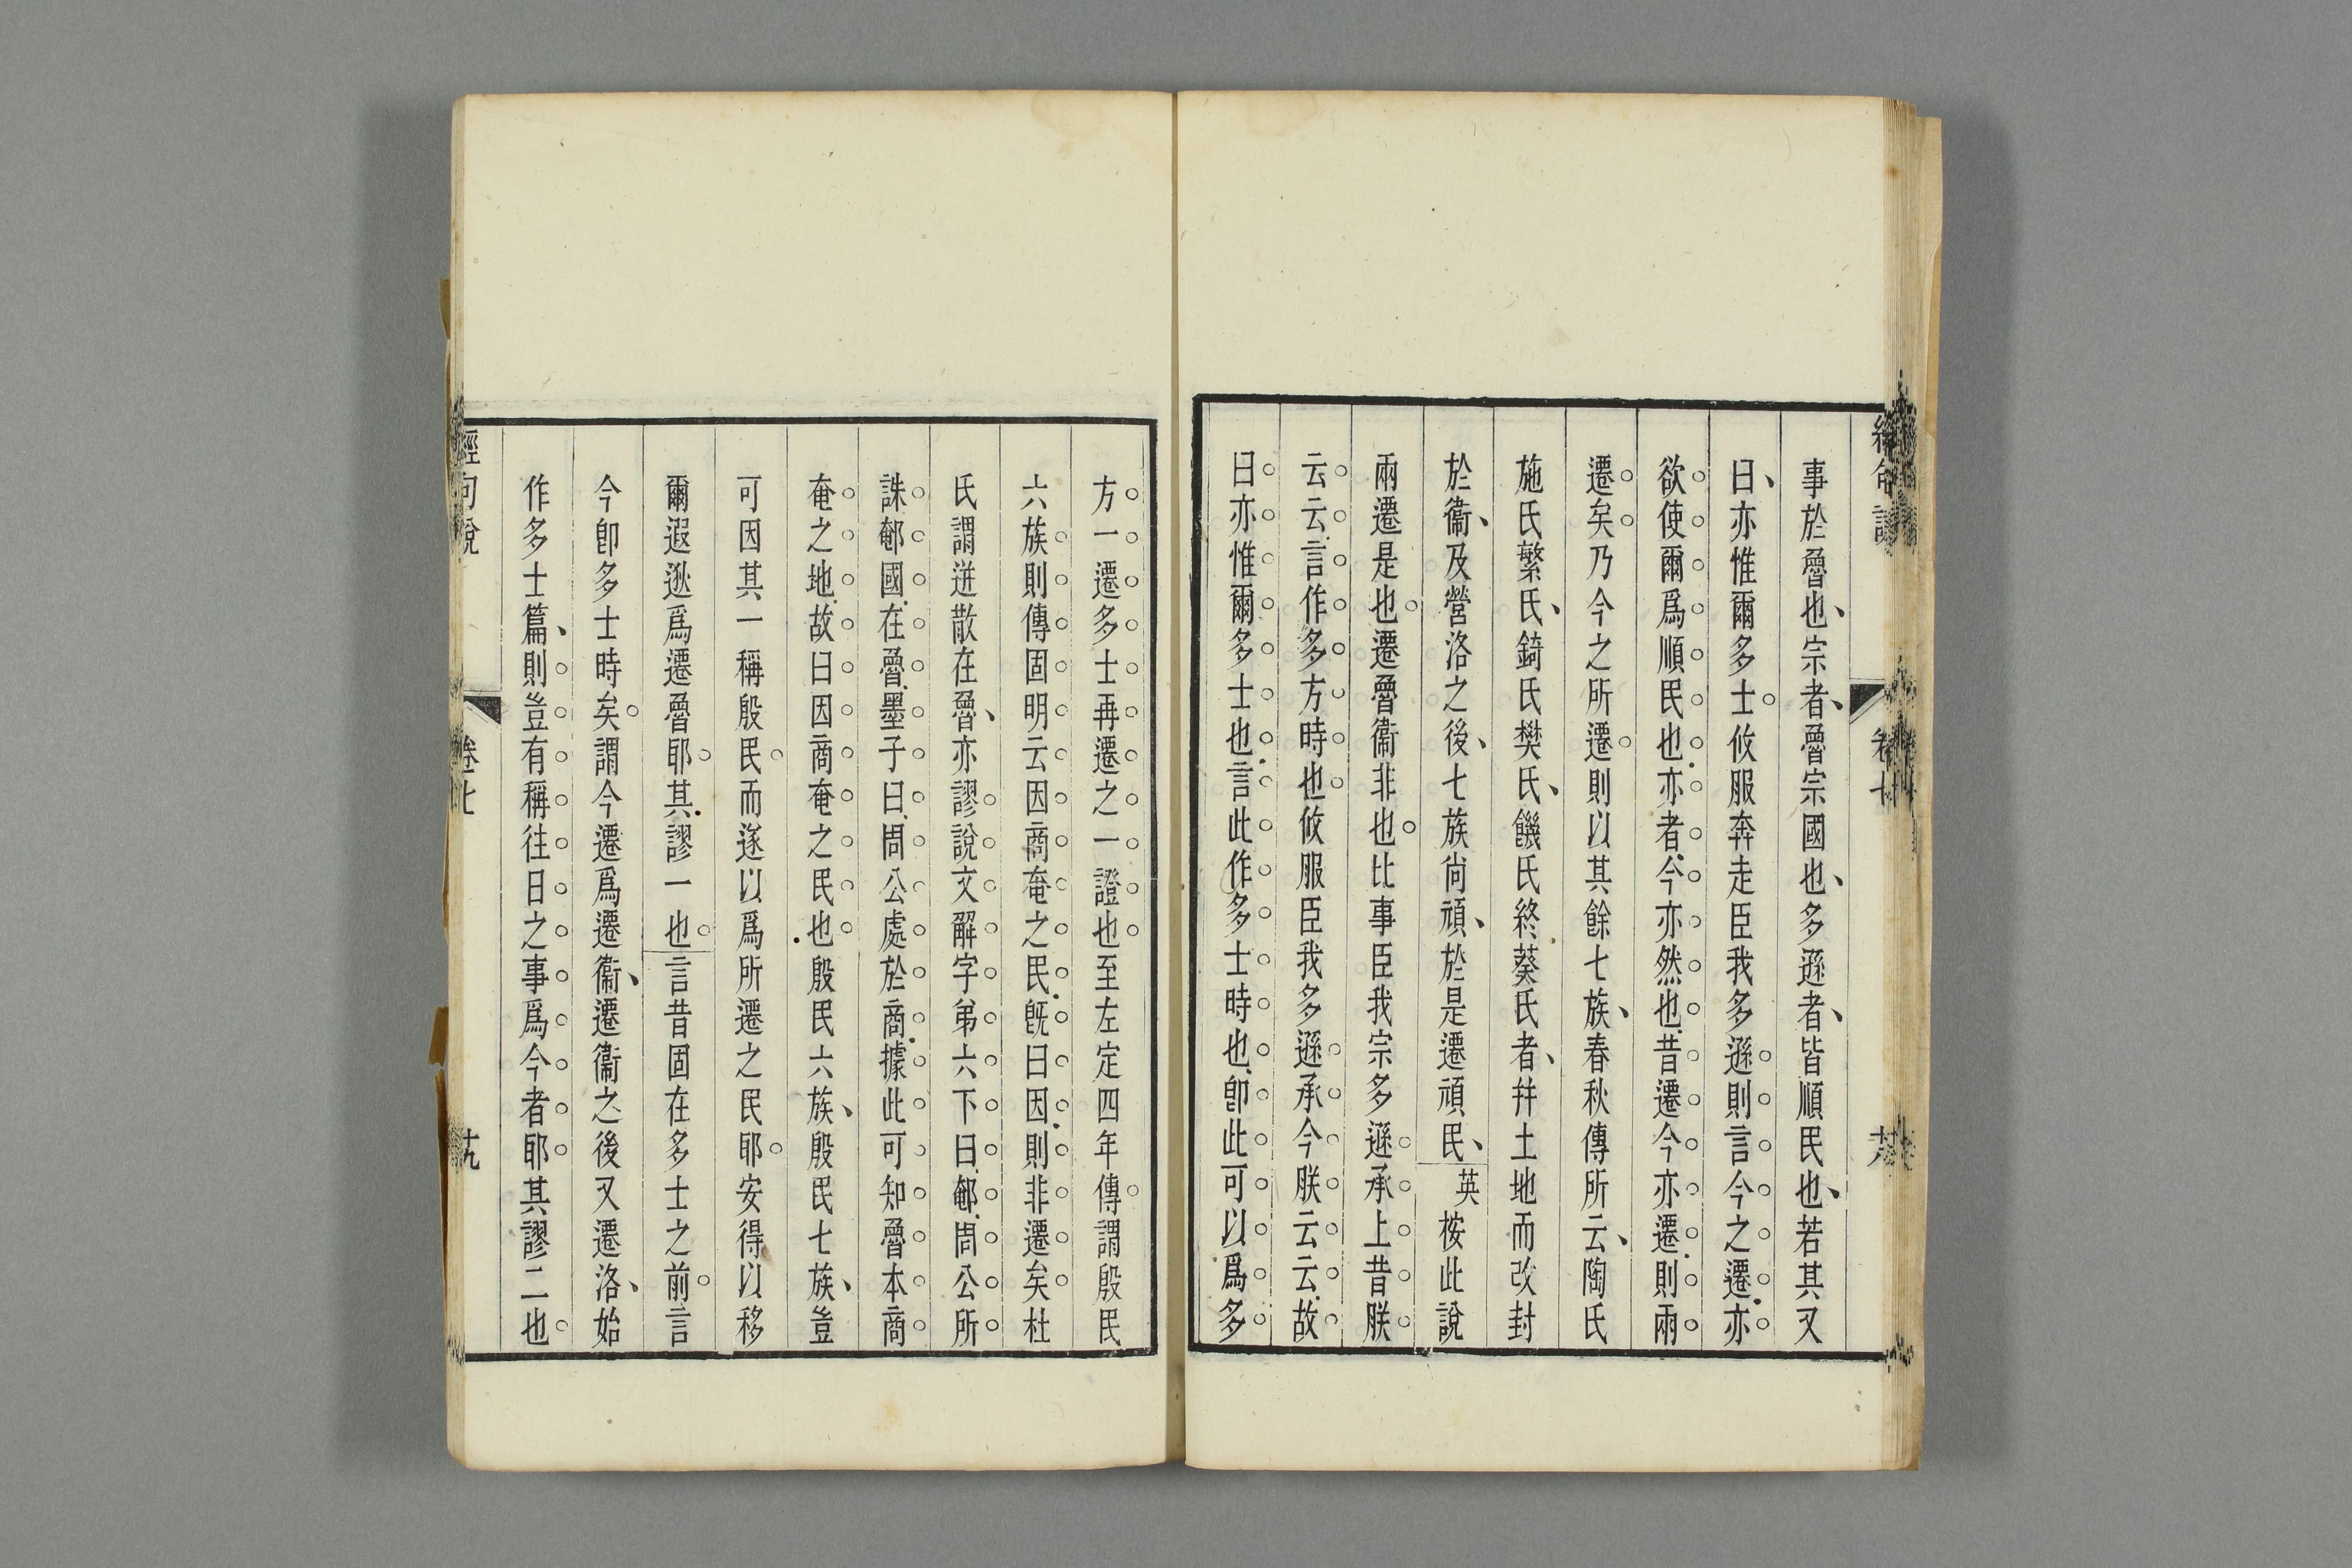 事於魯也宗者魯宗國也多遜者皆順民也若其又
曰亦惟爾多士攸服奔走臣我多遜則言今之遷亦
欲使爾爲順民也亦者今亦然也昔遷今亦遷則兩
遷矣乃今之所遷則以其餘七族春秋傳所云陶氏
施氏繁氏錡氏樊氏饑氏終葵氏者幷土地而改封
於衞及營洛之後七族尙頑於是遷頑民英桉此說
兩遷是也遷魯衞非也比事臣我宗多遜承上昔朕
云云言作多方時也攸服臣我多遜承今朕云云故
曰亦惟爾多士也言此作多士時也卽此可以爲多
方一遷多士再遷之一證也至左定四年傳謂殷民
六族則傳固明云因商奄之民旣曰因則非遷矣杜
氏謂迸散在魯亦謬說文解字弟六下曰郁周公所
誅郁國在魯墨子曰周公處於商據此可知魯本商
奄之地故曰因商奄之民也殷民六族殷民七族豈
可因其一稱殷民而遂以爲所遷之民耶安得以移
爾遐逖爲遷魯耶其謬一也言昔固在多士之前言
今卽多士時矣謂今遷爲遷衞遷衞之後又遷洛始
作多士篇則豈有稱往日之事爲今者耶其謬二也
經句說
卷七